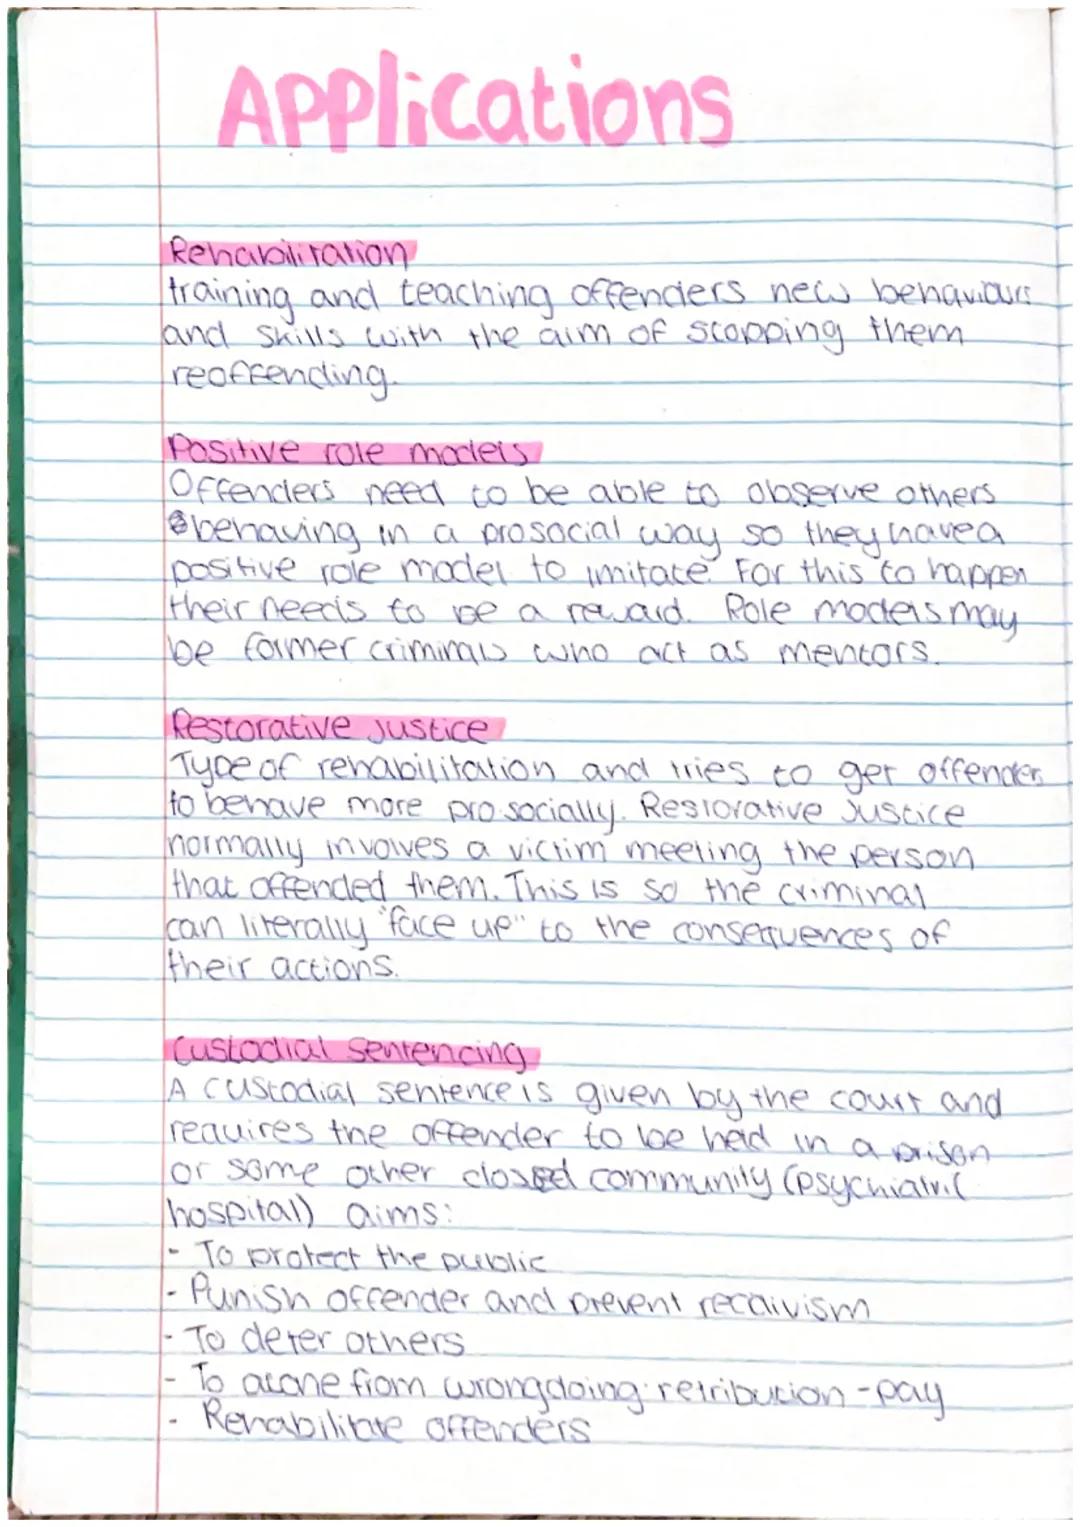 Applications
Rehabilitation
training and teaching offenders new behaviours
and skills with the aim of stopping them
reoffending.
Positive role models
Offenders need to be able to observe others
behaving in a prosocial way so they have a
positive role model to imitate. For this to happen
their needs to be a reward. Role models may
be former criminals who act as mentors.
Restorative justice
Type of rehabilitation and tries to get offender
to behave more pro.socially. Restorative Justice
normally involves a victim meeting the person
that offended them. This is so the criminal
can literally "face up" to the consequences of
their actions.
Custodial sentencing
A custodial sentence is given by the court and
requires the offender to be held in a prison
or some other closed community (psychiatric
hospital) aims:
- To protect the public
- Punish offender and prevent recdivism
- To deter others
- To atone from wrongdoing: retribution - pay
- Rehabilitate offenders